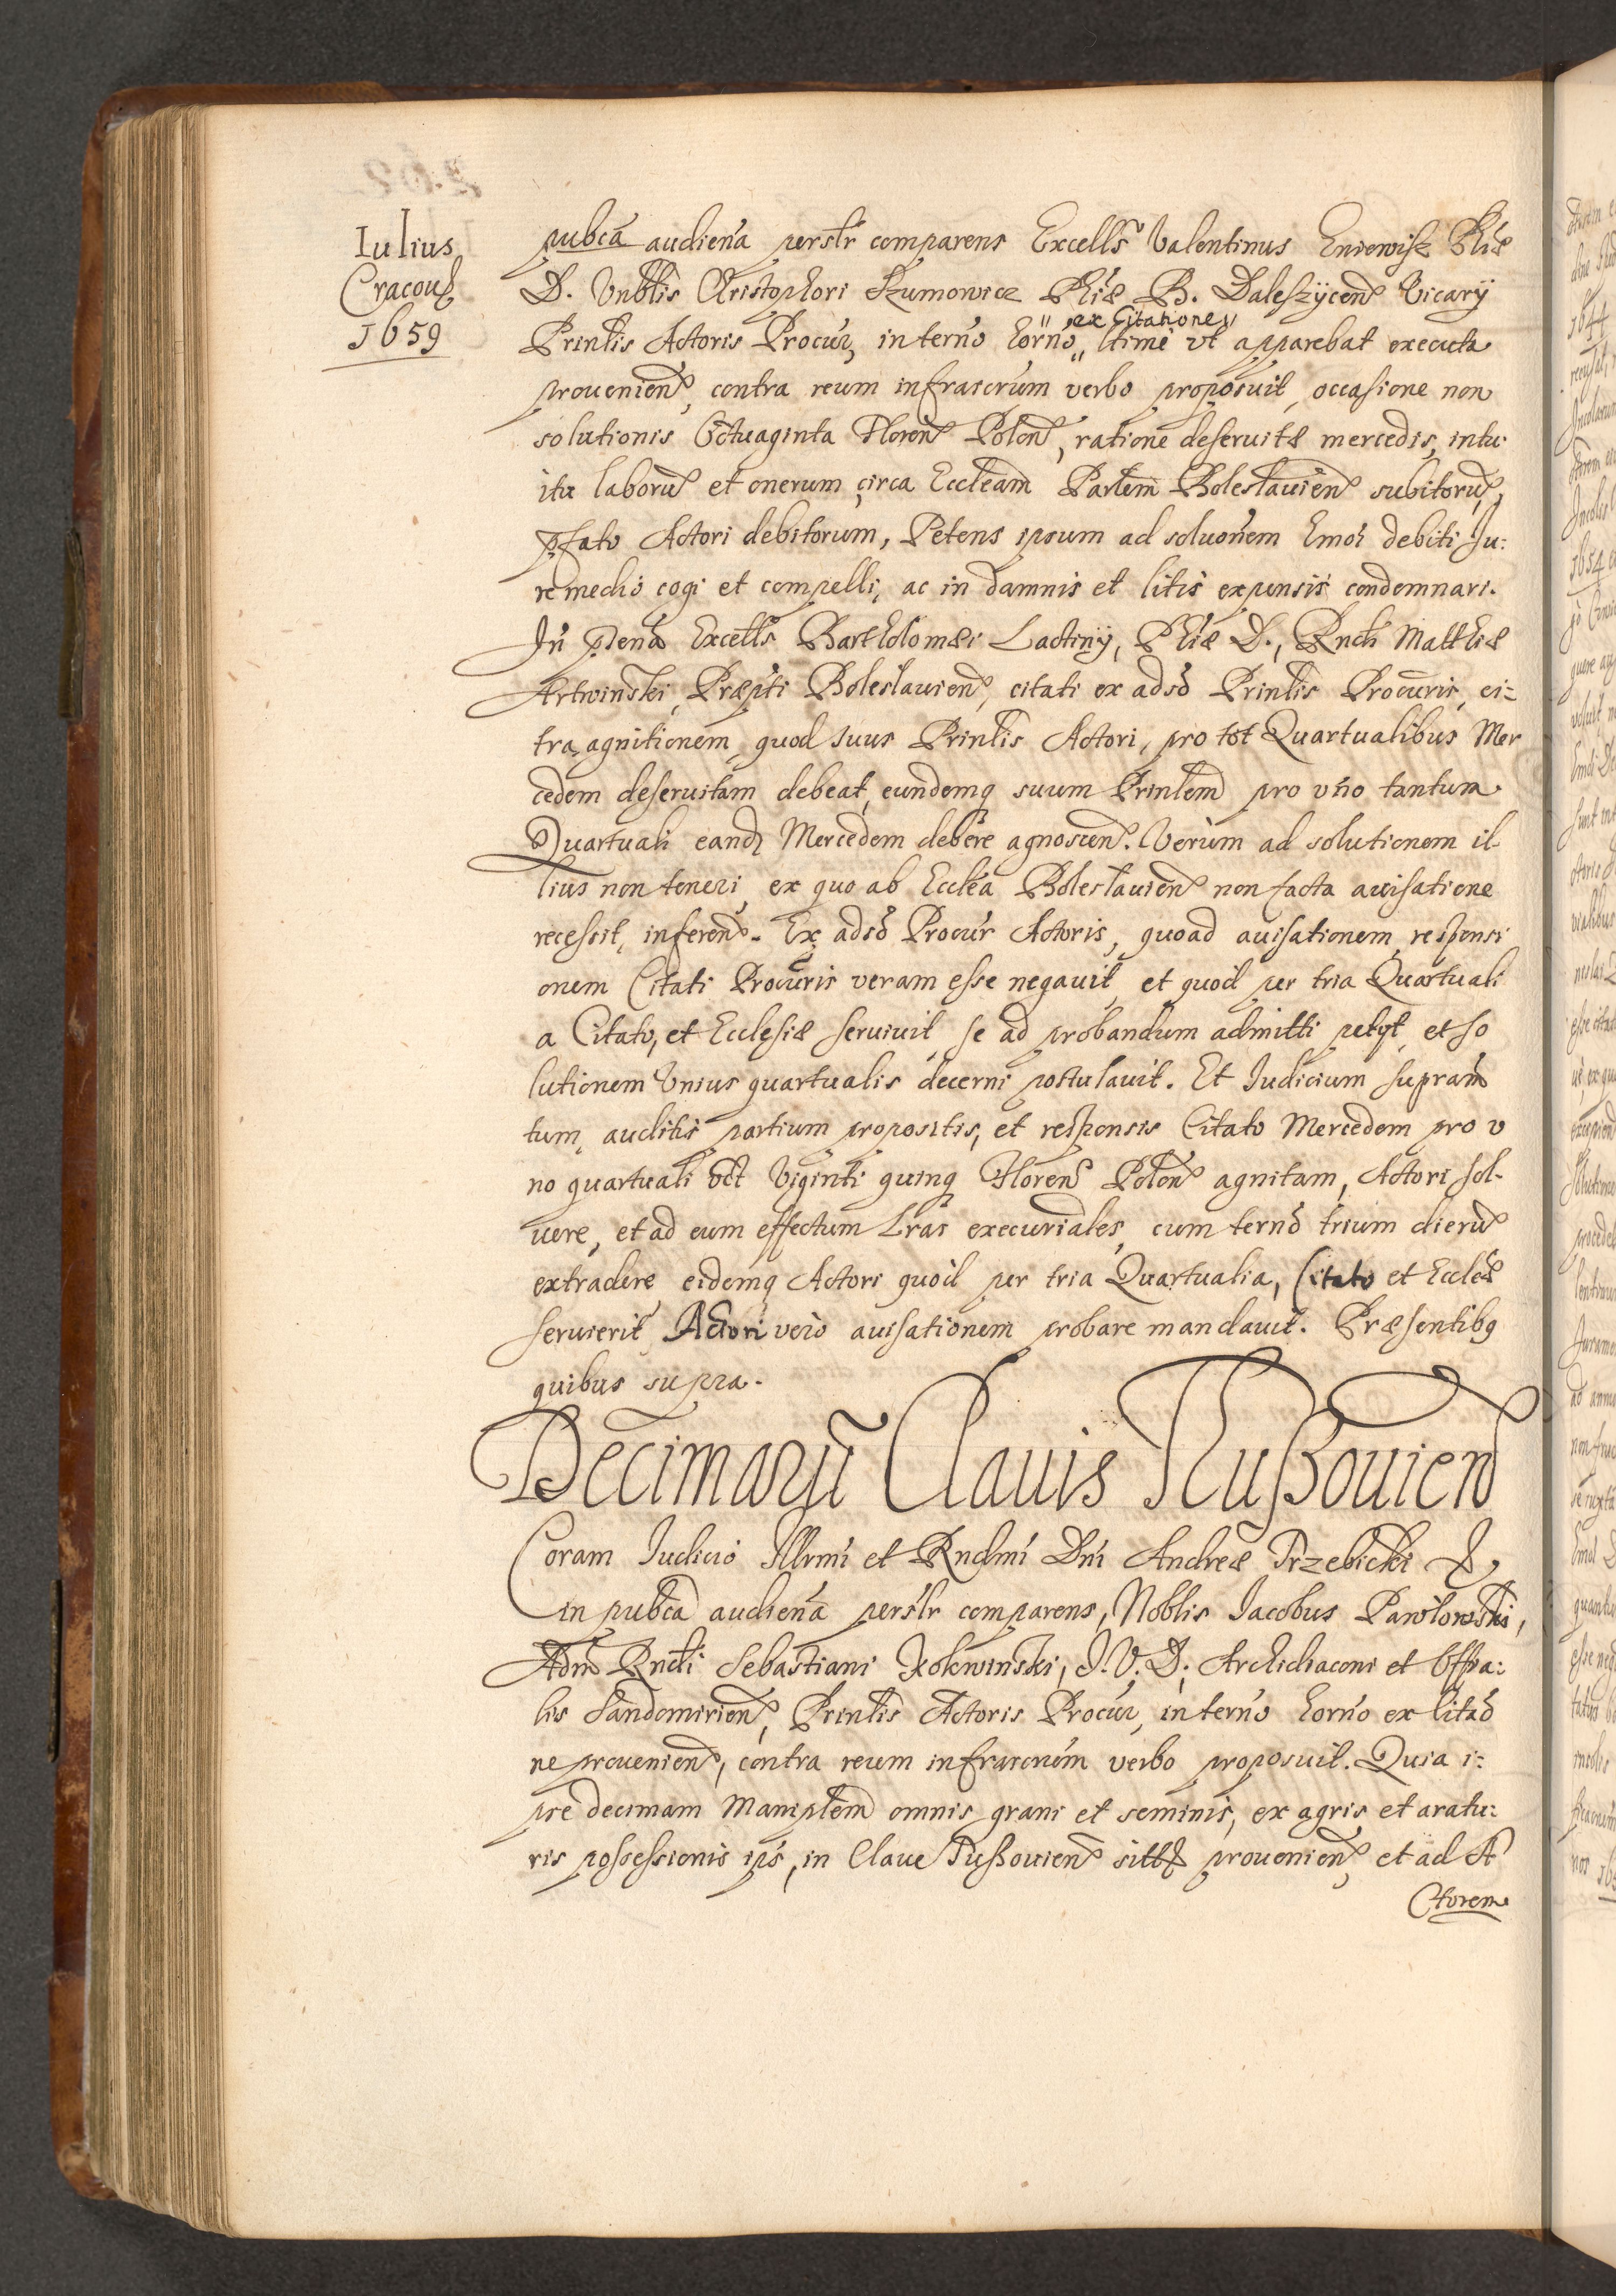 Iulius
Cracouię
1659
pubca audiena persolr comparens Excells Valentinus Eniewisz Phię
D. Vnblis Christophori Szumowicz Phię B. Daleszÿcen Vicarÿ
Prinlis Actoris Procur, in terno horno "ex Citatione" ltime vt apparebat executa
prouenien, contra reum infrascrum verbo proposuit, occasione non
solutionis Octuaginta Floren Polon, ratione deseruitę mercedis, intu
itu laboru et onerum circa Eccleam Parlem Boleslauien subitoru,
pfato Actori debitorum, Petens ipsum ad soluonem hmoi debiti Iu:
remedio cogi et compelli, ac in damnis et litis expensis condemnari.
In pñena Excells Bartholomęi Lactinÿ, Phię D., Rndi Matthię
Artwinski, Præpti Boleslauien, citati ex adso Prinlis Procuris, ci=
tra agnitionem, quod suus Prinlis Actori, pro tot Quartualibus Mer
cedem deseruitam debeat, eundemq suum Prinlem pro vno tantum
Quartuali eand Mercedem debere agnoscen. Verum ad solutionem il-
lius non teneri, ex quo ab Ecclea Boleslauien non facta auisatione
recessit, inferen. Ex adso Procur Actoris, quoad auisationem, responsi
onem Citati Procuris veram esse negauit, et quod per tria Quartuali
a Citato, et Ecclesię seruiuit, se ad probandum admitti petÿt, et so
lutionem Vnius quartualis decerni postulauit. Et Iudicium supram
tum, auditis partium propositis, et responsis Citato Mercedem pro v
no quartuali vct Viginti quinq Floren Polon agnitam, Actori sol-
uere, et ad eum effectum Lras execuriales, cum terno trium dieru
extradere, eidemq Actori quod per tria Quartualia, Citato et Eccleę
seruierit, Actori vero auisationem probare mandauit. Præsentibq
quibus supra.
Decimaru Clauis Tußouien
Coram Iudicio Illrmi et Rndmi Dni Andreę Trzebicki &
in pubca audiena persolr comparens, Noblis Iacobus Pawlowski,
Adm Rndi Sebastiani Rokwinski, I. V. D. Archidiaconi et Offia:
lis Sandomirien, Prinlis Actoris Procur, in terno horno ex Citao
ne prouenien, contra reum infrascrum verbo proposuit. Quia i=
pse decimam Maniplem omnis grani et seminis, ex agris et aratu:
ris possessionis ips, in Claue Tußouien sitt& prouenien, et ad A
Ctorem